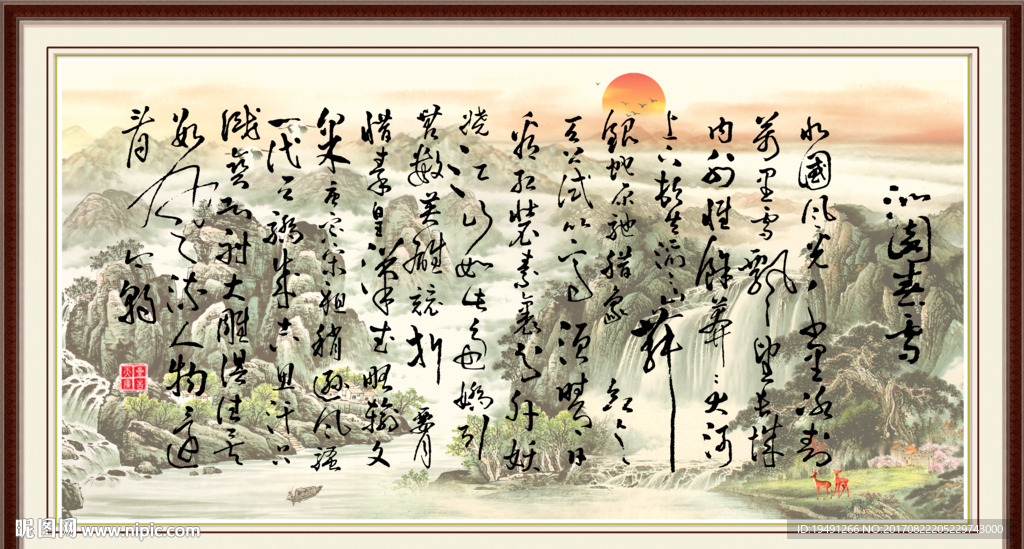 沁園春雪
北國风光千里冰封
萬里雪飘望长城
内外惟餘莽莽大河
上下顿失滔滔山舞
銀蛇原驰腊象欲与
天公试比高须晴日
看红装素裹分外妖
娆江山如此多娇引
无数英雄竞折腰
惜秦皇漢武略输文
采唐宗宋祖稍逊风骚
一代天骄成吉思汗只
識弯弓射大雕俱往矣
数风流人物还
看今朝
昵图网 www.nipic.com
ID:19491266 NO:20170822205229743000